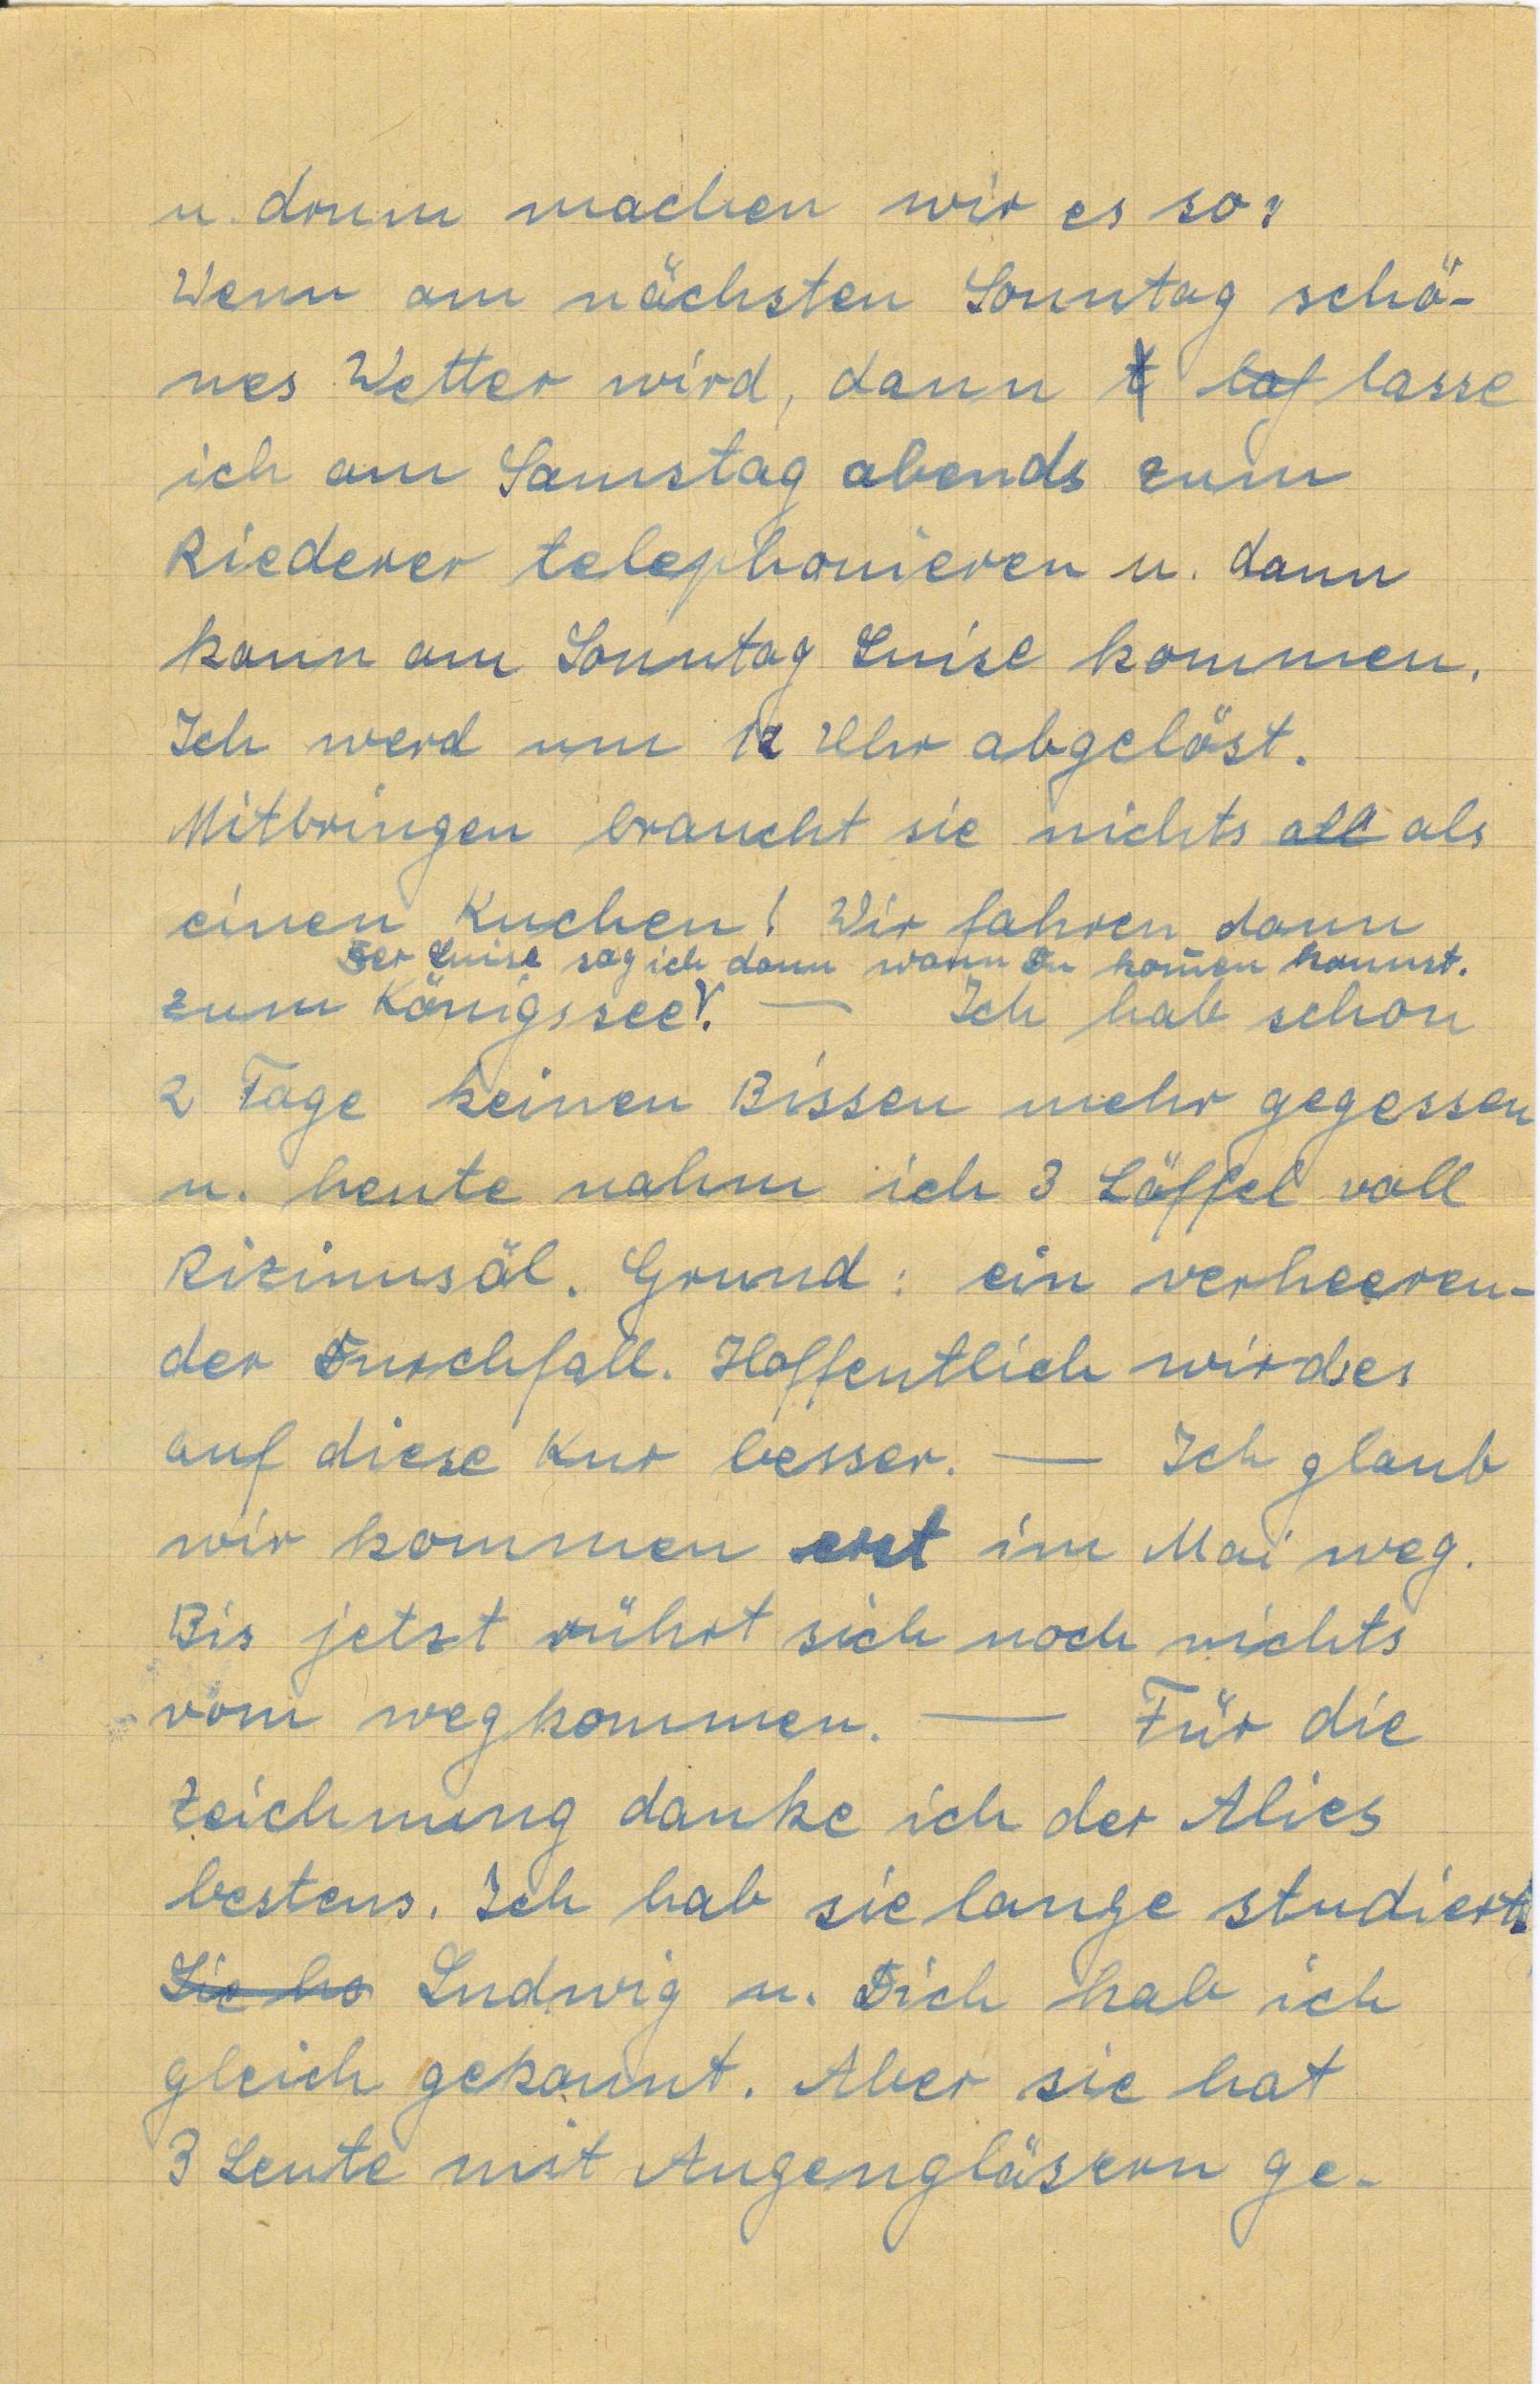 u. drum machen wir es so:
Wenn am nächsten Sonntag schö-
nes Wetter wird, dann t laß lasse
ich am Samstag abends zum
Riederer telephonieren u. dann
kann am Sonntag Luise kommen.
Ich werd um 12 Uhr abgelöst.
Mitbringen braucht sie nichts all als
einen Kuchen! Wir fahren dann
Der Luise sag ich dann wann Du kom̄en kannst.
zum Königssee. — Ich hab schon
2 Tage keinen Bissen mehr gegessen
u. heute nahm ich 3 Löffel voll
Rizinusöl. Grund: ein verheeren-
der Durchfall. Hoffentlich wird es
auf diese Kur besser. — Ich glaub
wir kommen erst im Mai weg.
Bis jetzt rührt sich noch nichts
vom wegkommen. — Für die
Zeichnung danke ich der Alies
bestens. Ich hab sie lange studiert.
Sie ha Ludwig u. Dich hab ich
gleich gekannt. Aber sie hat
3 Leute mit Augengläsern ge-